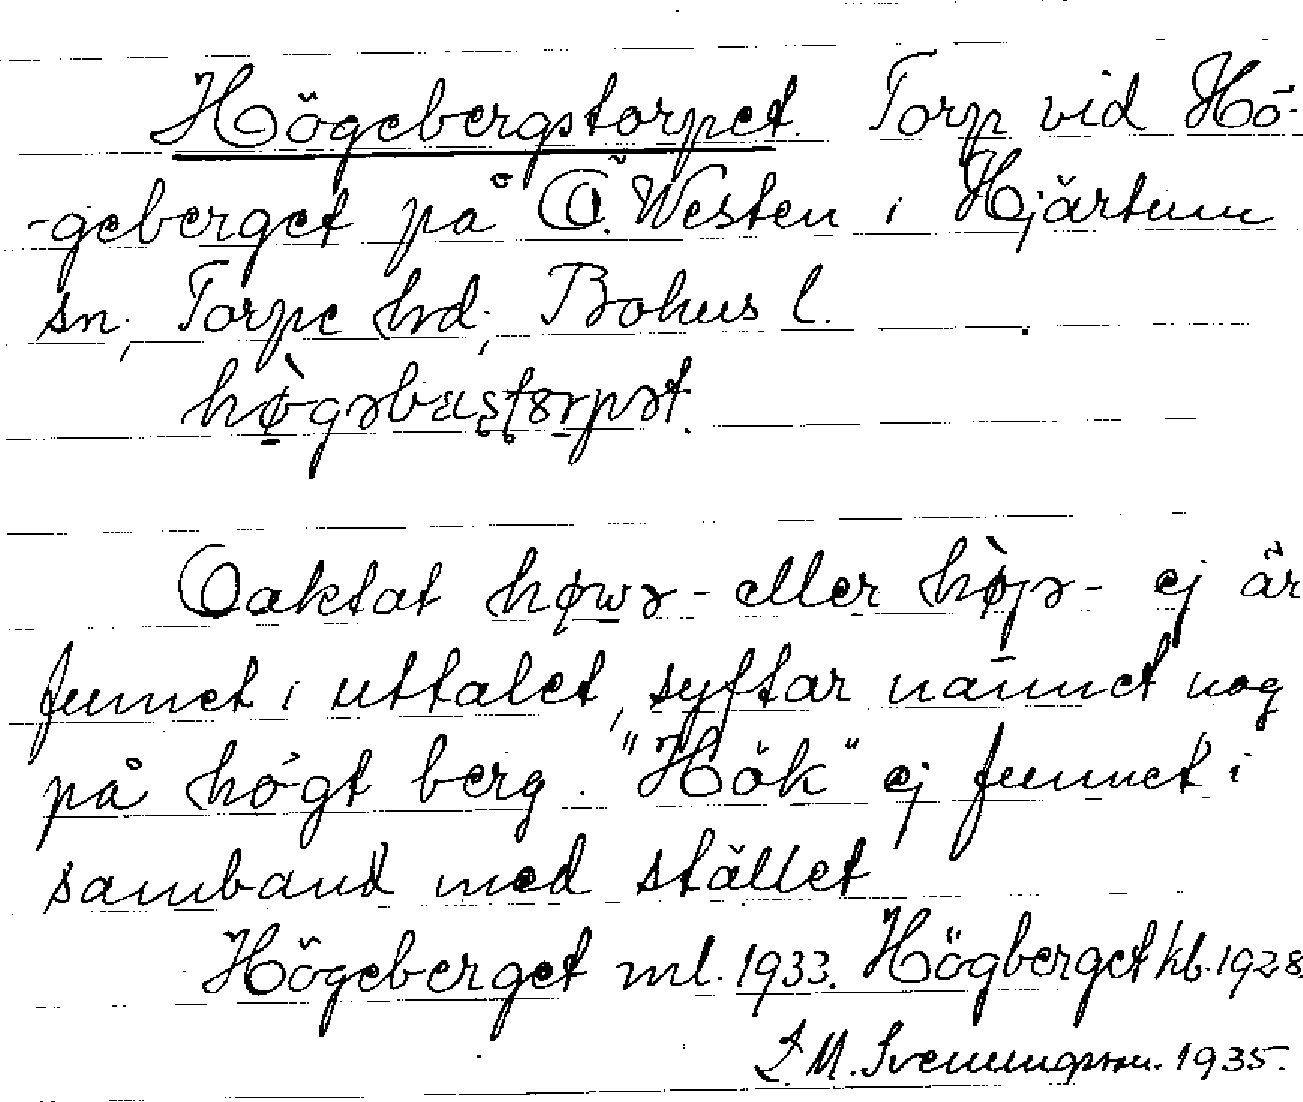 Högebergstorpet. Torp vid Hö-
-geberget på Ö. Westen i Hjärtum
sn, Torpe hrd, Bohus l.
Oaktat høwə- eller hø̀jə- ej är
funnet i uttalet, syftar namnet nog
på högt berg. "Hök" ej funnet i
samband med stället
Högeberget ml. 1933. Högberget kb. 1928.
M. Svenningsson. 1935.